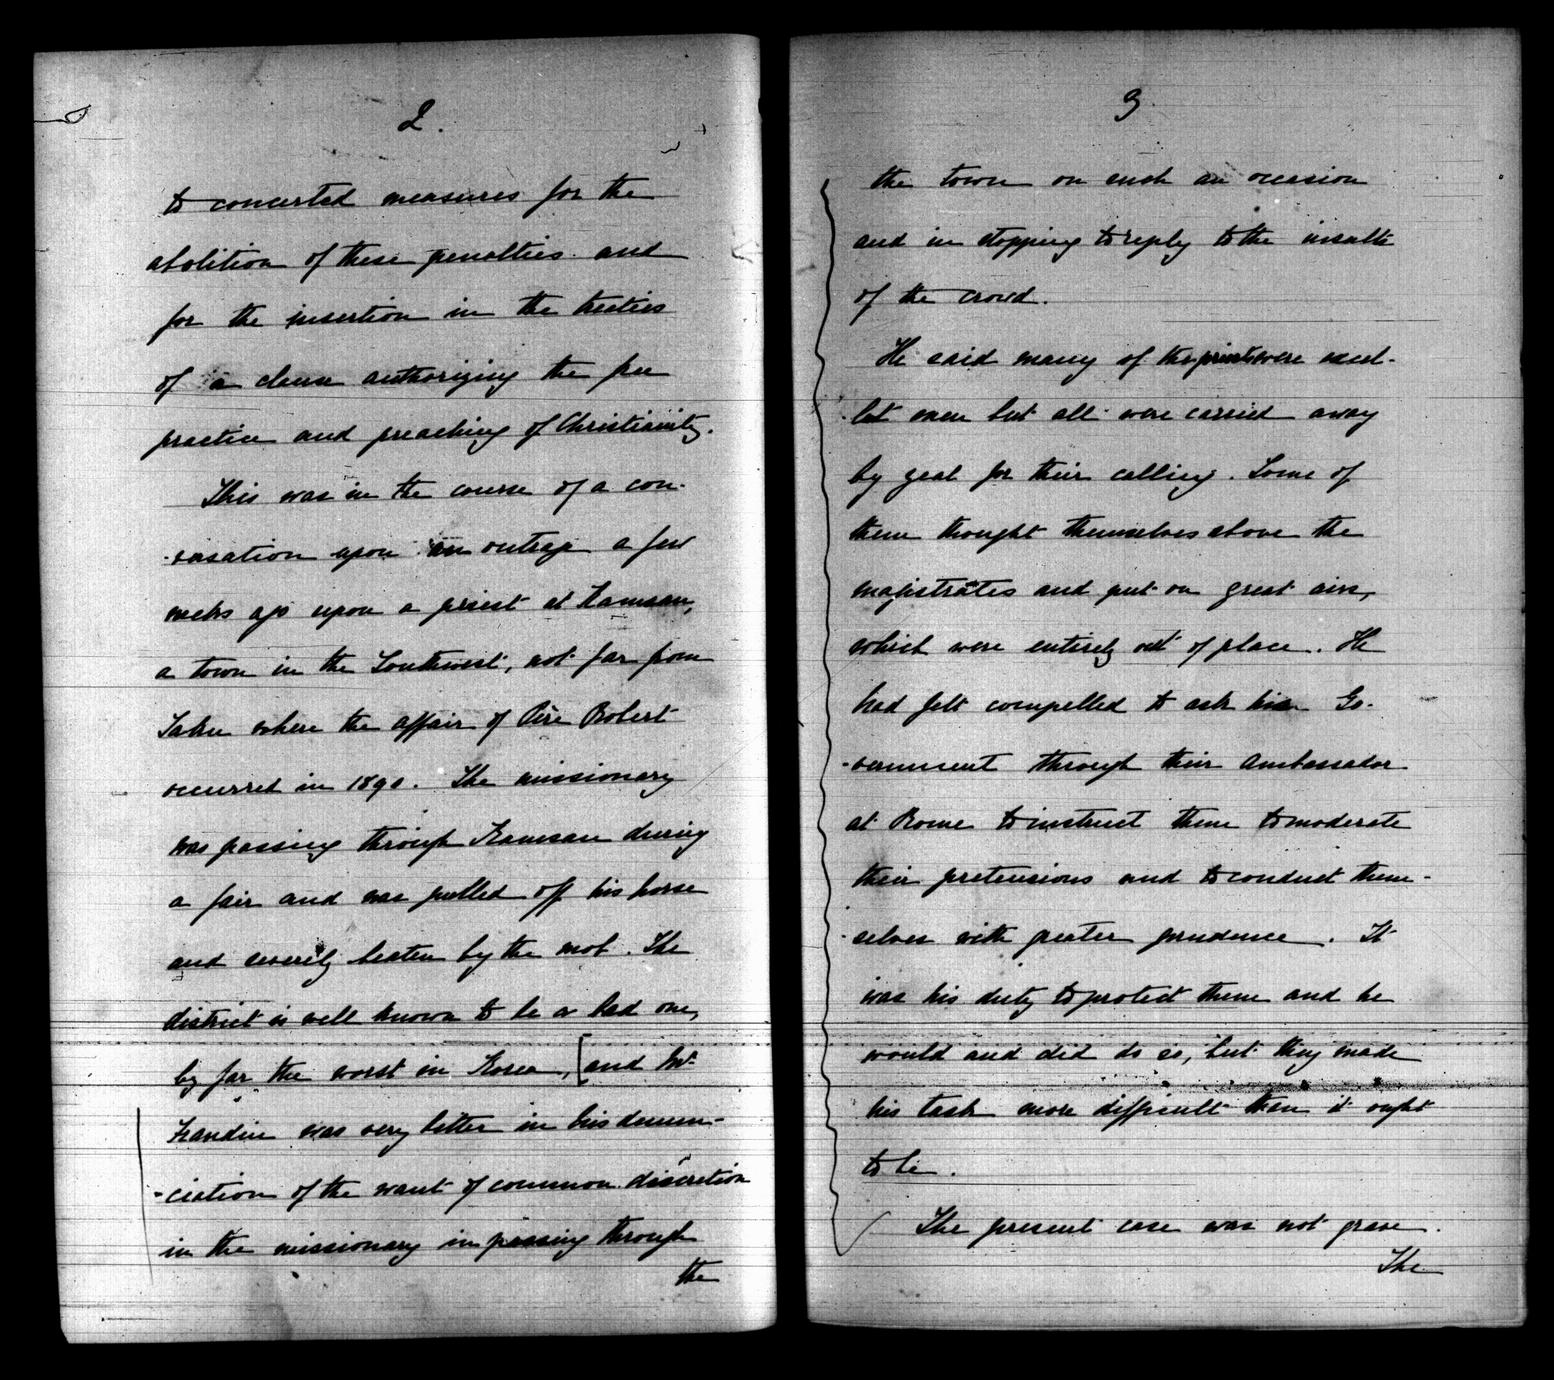 2.
to concerted measures for the
abolition of these penalties and
for the insertion in the treaties
of a clause authorizing the free
practice and preaching of Christianity.
This was in the course of a con-
-versation upon an outrage a few
weeks ago upon a priest at Kamsan,
a town in the Southwest, not far from
Taku where the affair of Père Robert
occurred in 1890. The missionary
was passing through Kamsan during
a fair and was pulled off his horse
and severely beaten by the mob. The
district is well known to be a bad one,
by far the worst in Korea, [and Mr.
Frandin was very bitter in his denun-
-ciation of the want of common discretion
in the missionary in passing through
the
3
the town on such an occasion
and in stopping to reply to the insults
of the crowd.
He said many of the priests were excel-
lent men but all were carried away
by zeal for their calling. Some of
them thought themselves above the
magistrates and put on great airs,
which were entirely out of place. He
had felt compelled to ask his Go-
-vernment through their Ambassador
at Rome to instruct them to moderate
their pretensions and to conduct them-
-selves with greater prudence. It
was his duty to protect them and he
would and did do so, but they made
his task more difficult than it ought
to be.
The present case was not grave.
The